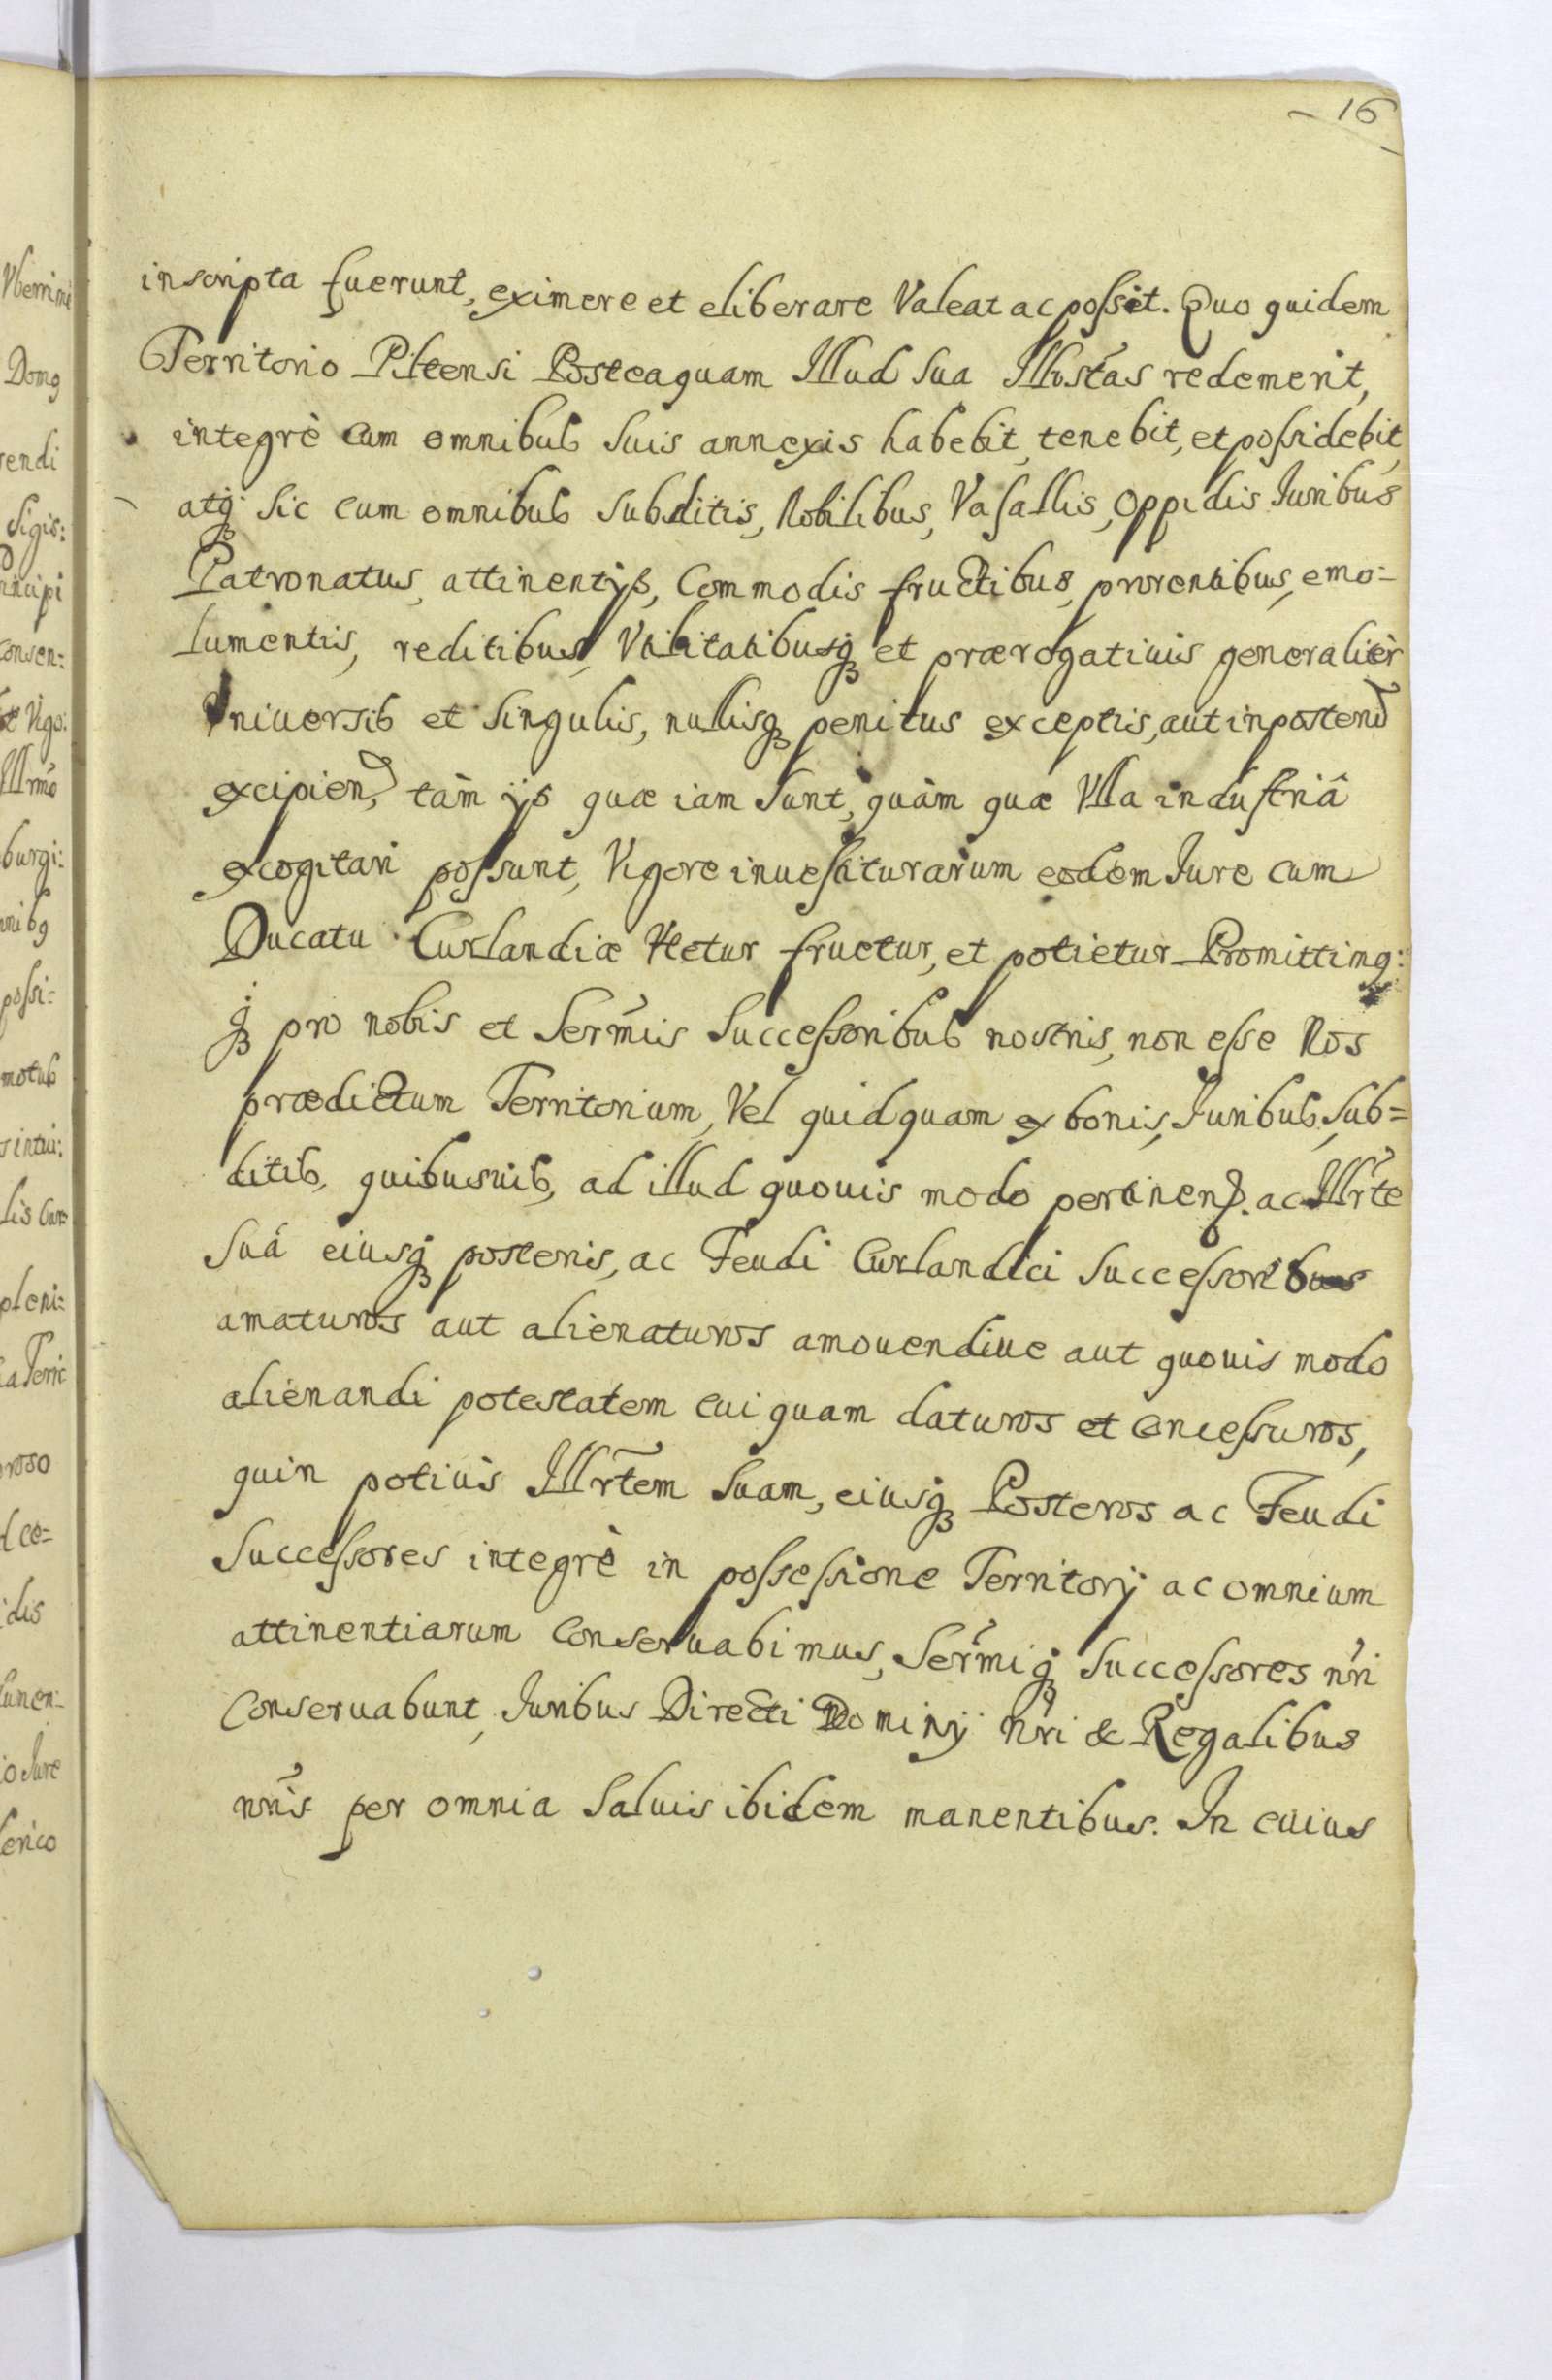 16
inscripta fuerunt, eximere et eliberare Valeat ac possit. Quo quidem
Territorio Piltensi Posteaquam Illud Sua Illustas redemerit,
integrè cum omnibus suis annexis habebit, tenebit, et possidebit,
atq; sic cum omnibus subditis, Nobilibus, Vasallis, Oppidis Juribus
Patronatus, attinentijs, Commodis fructibus, proventibus, emo-
lumentis, reditibus, Vtilitatibusq; et prærogatiuis generalitèr
Vniuersis et singulis, nullisq; penitus exceptis, aut inposterū
excipien, tàm ijs quæ iam sunt, quàm quæ Vlla industriâ
excogitari possunt, Vigore inuestiturarum eodem Jure cum
Ducatu Curlandiæ Vtetur fruetur, et potietur Promittimq:
q; pro nobis et Serm̃is Successoribus nostris, non esse Nos
prædictum Territorium, Vel quidquam ex bonis, Juribus, sub=
ditis, quibusuis, ad illud quouis modo pertinen. ac Illr̃te
suâ eiusq; posteris, ac Feudi Curlandici Successoribus
amaturos aut alienaturos amouendiue aut quouis modo
alienandi potestatem cuiquam daturos et concessuros,
quin potius Illr̃tem suam, eiusq; Posteros ac Feudi
Successores integrè in possessione Territorij ac omnium
attinentiarum conseruabimus, Serm̃iq; Successores nr̃i
Conseruabunt, Juribus Directi Dominij Nr̃i & Regalibus
nr̃is per omnia saluis ibidem manentibus. In cuius
Dong
rendi
Sigis:
ncipi
consen:
et Vigo:
Illmo
burgi:
possi=
motus
pleni=
roso
d ce=
idis
io Jure